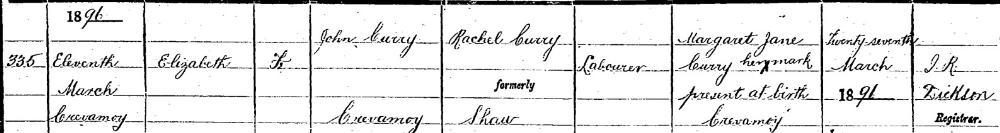 1896
335
Eleventh
March
Crevamoy
Elizabeth
F.
John Curry
Crevamoy
Rachel Curry
formerly
Shaw
Labourer
Margaret Jane
Curry her x mark
present at birth
Crevamoy
Twenty seventh
March
1896
J. R.
Dickson
Registrar.